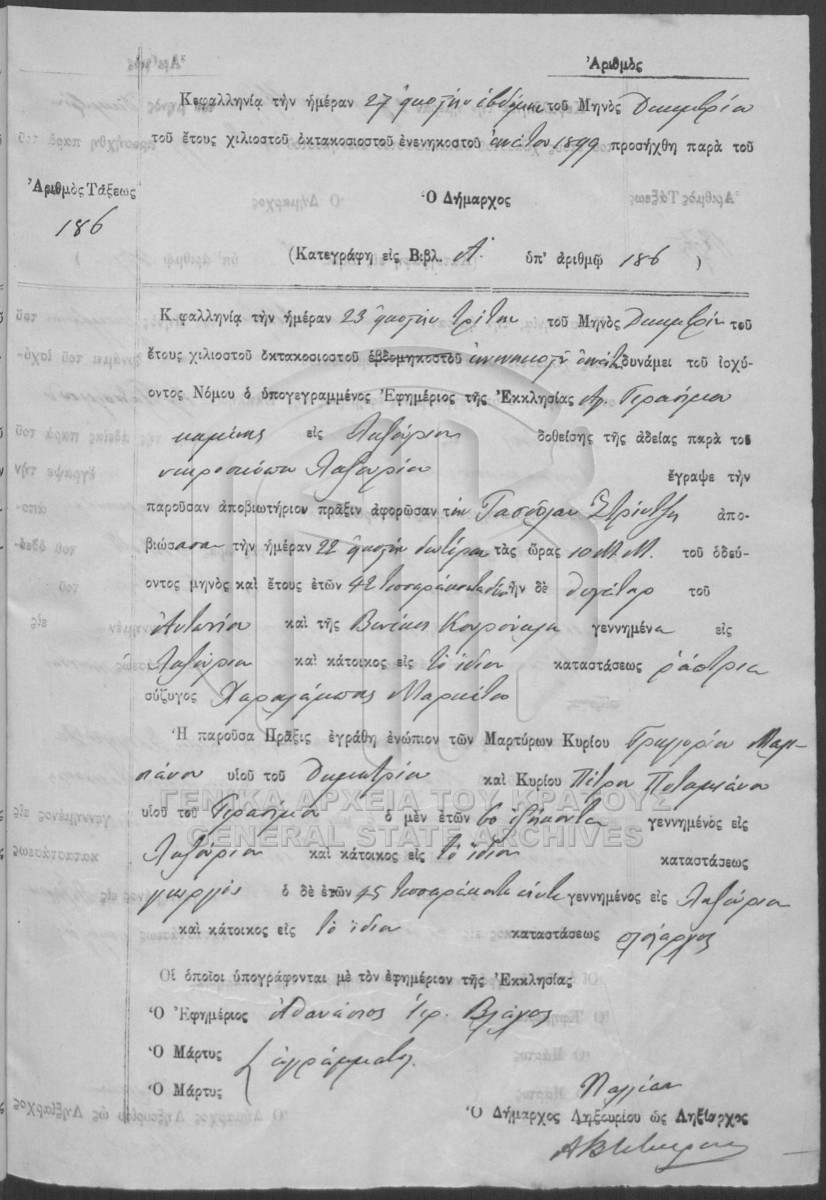 Ἀριθμὸς
Κεφαλληνίᾳ τὴν ἡμέραν 27 εἰκοστὴν ἑβδόμην τοῦ Μηνὸς Δεκεμβρίου
τοῦ ἔτους χιλιοστοῦ ὀκτακοσιοστοῦ ἐνενηκοστοῦ ἐνάτου 1899 προσήχθη παρὰ τοῦ
Ἀριθμὸς Τάξεως
186
Ὁ Δήμαρχος
(Κατεγράφη εἰς Βιβλ. Α. ὑπ' ἀριθμῷ 186 )
Κεφαλληνίᾳ τὴν ἡμέραν 23 εἰκοστὴν τρίτην τοῦ Μηνὸς Δεκεμβρίου τοῦ
ἔτους χιλιοστοῦ ὀκτακοσιοστοῦ ἑβδομηκοστοῦ ἐνενηκοστοῦ ἐνάτου δυνάμει τοῦ ἰσχύ-
οντος Νόμου ὁ ὑπογεγραμμένος Ἐφημέριος τῆς Ἐκκλησίας Ἁγ. Γερασίμου
εἰς Ληξούριον δοθείσης τῆς ἀδείας παρὰ τοῦ
νεκροσκόπου Ληξουρίου ἔγραψε τὴν
παροῦσαν ἀποβιωτήριον πρᾶξιν ἀφορῶσαν τὴν Τασούλαν ἀπο-
βιώσασαν τὴν ἡμέραν 22 εἰκοστὴν δευτέραν τὰς ὥρας 10 Μ.Μ. τοῦ ὁδεύ-
οντος μηνὸς καὶ ἔτους ἐτῶν 42 τεσσαράκοντα δύο ἦν δὲ θυγάτηρ τοῦ
Ἀντωνίου καὶ τῆς γεννημένα εἰς
Ληξούριον καὶ κάτοικος εἰς τὸ ἴδιον καταστάσεως ῥάπτρια
σύζυγος Χαραλάμπους Μαρκέτου
Ἡ παροῦσα Πρᾶξις ἐγράθη ἐνώπιον τῶν Μαρτύρων Κυρίου Γρηγορίου
υἱοῦ τοῦ Δημητρίου καὶ Κυρίου Πέτρου Ποταμιάνου
ΓΕΝΙΚΑ ΑΡΧΕΙΑ ΤΟΥ ΚΡΑΤΟΥΣ
υἱοῦ τοῦ Γερασίμου ὁ μὲν ἐτῶν 60 ἑξήκοντα γεννημένος εἰς
GENERAL STATE ARCHIVES
Ληξούριον καὶ κάτοικος εἰς τὸ ἴδιον καταστάσεως
γεωργὸς ὁ δὲ ἐτῶν 45 τεσσαράκοντα πέντε γεννημένος εἰς Ληξούριον
καὶ κάτοικος εἰς τὸ ἴδιον καταστάσεως
Οἱ ὁποῖοι ὑπογράφονται μὲ τὸν ἐφημέριον τῆς Ἐκκλησίας
Ὁ Ἐφημέριος Ἀθανάσιος Ἱερ. Βλάχος
Ὁ Μάρτυς ἀγράμματοι
Ὁ Μάρτυς
Παλλέων
Ὁ Δήμαρχος Ληξουρίου ὡς Ληξίαρχος